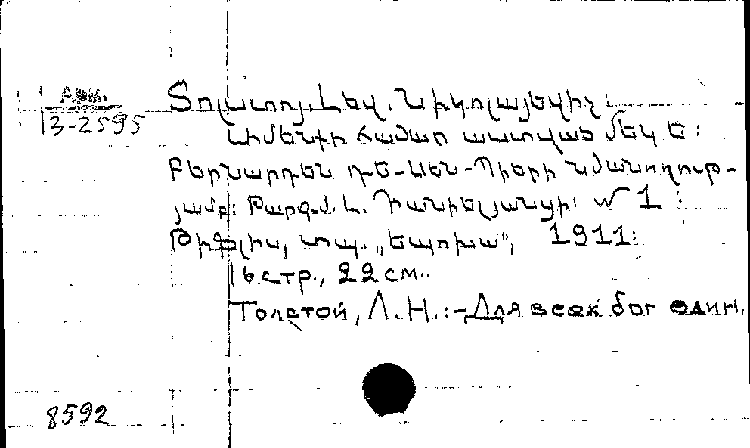 Арм.
13-2595
Տոլստոյ, Լեվ. Նիկոլայեվիչ:
Ամենքի համար աստված մեկ է:
Բերնարդեն դե-Սեն-Պիերի նմանողութ-
յամբ: Թարգմ. Լ. №1:
Թիֆլիս, տպ. „Եպոխա“, 1911:
16 стр., 22 см.
Толстой, Л. Н.:-Для всех бог один.
8592